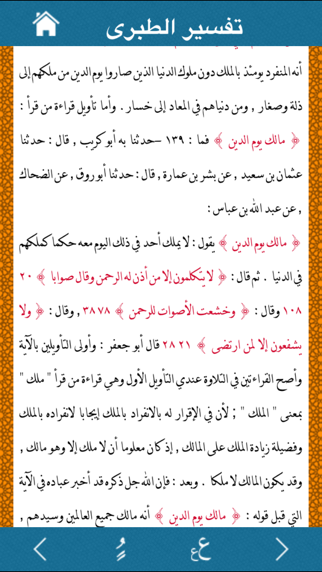 تفسير الطبرى
أنه المنفرد يومئذ بالملك دون ملوك الدنيا الذين صاروا يوم الدين من ملكهم إلى
ذلة وصغار , ومن دنياهم في المعاد إلى خسار . وأما تأويل قراءة من قرأ :
﴿ مالك يوم الدين ﴾ فما : ١٣٩ –حدثنا به أبو كريب , قال : حدثنا
عثمان بن سعيد , عن بشر بن عمارة , قال : حدثنا أبو روق , عن الضحاك
, عن عبد الله بن عباس :
﴿ مالك يوم الدين ﴾ يقول : لا يملك أحد في ذلك اليوم معه حكما كملكهم
في الدنيا . ثم قال : ﴿ لا يتكلمون إلا من أذن له الرحمن وقال صوابا ﴾ ٢٠
١٠٨ وقال : ﴿ وخشعت الأصوات للرحمن ﴾ ٣٨ ٧٨ , وقال : ﴿ ولا
يشفعون إلا لمن ارتضى ﴾ ٢١ ٢٨ قال أبو جعفر : وأولى التأويلين بالآية
وأصح القراءتين في التلاوة عندي التأويل الأول وهي قراءة من قرأ " ملك "
بمعنى " الملك " ; لأن في الإقرار له بالانفراد بالملك إيجابا لانفراده بالملك
وفضيلة زيادة الملك على المالك , إذ كان معلوما أن لا ملك إلا وهو مالك ,
وقد يكون المالك لا ملكا . وبعد : فإن الله جل ذكره قد أخبر عباده في الآية
التي قبل قوله : ﴿ مالك يوم الدين ﴾ أنه مالك جميع العالمين وسيدهم ,
ع ع